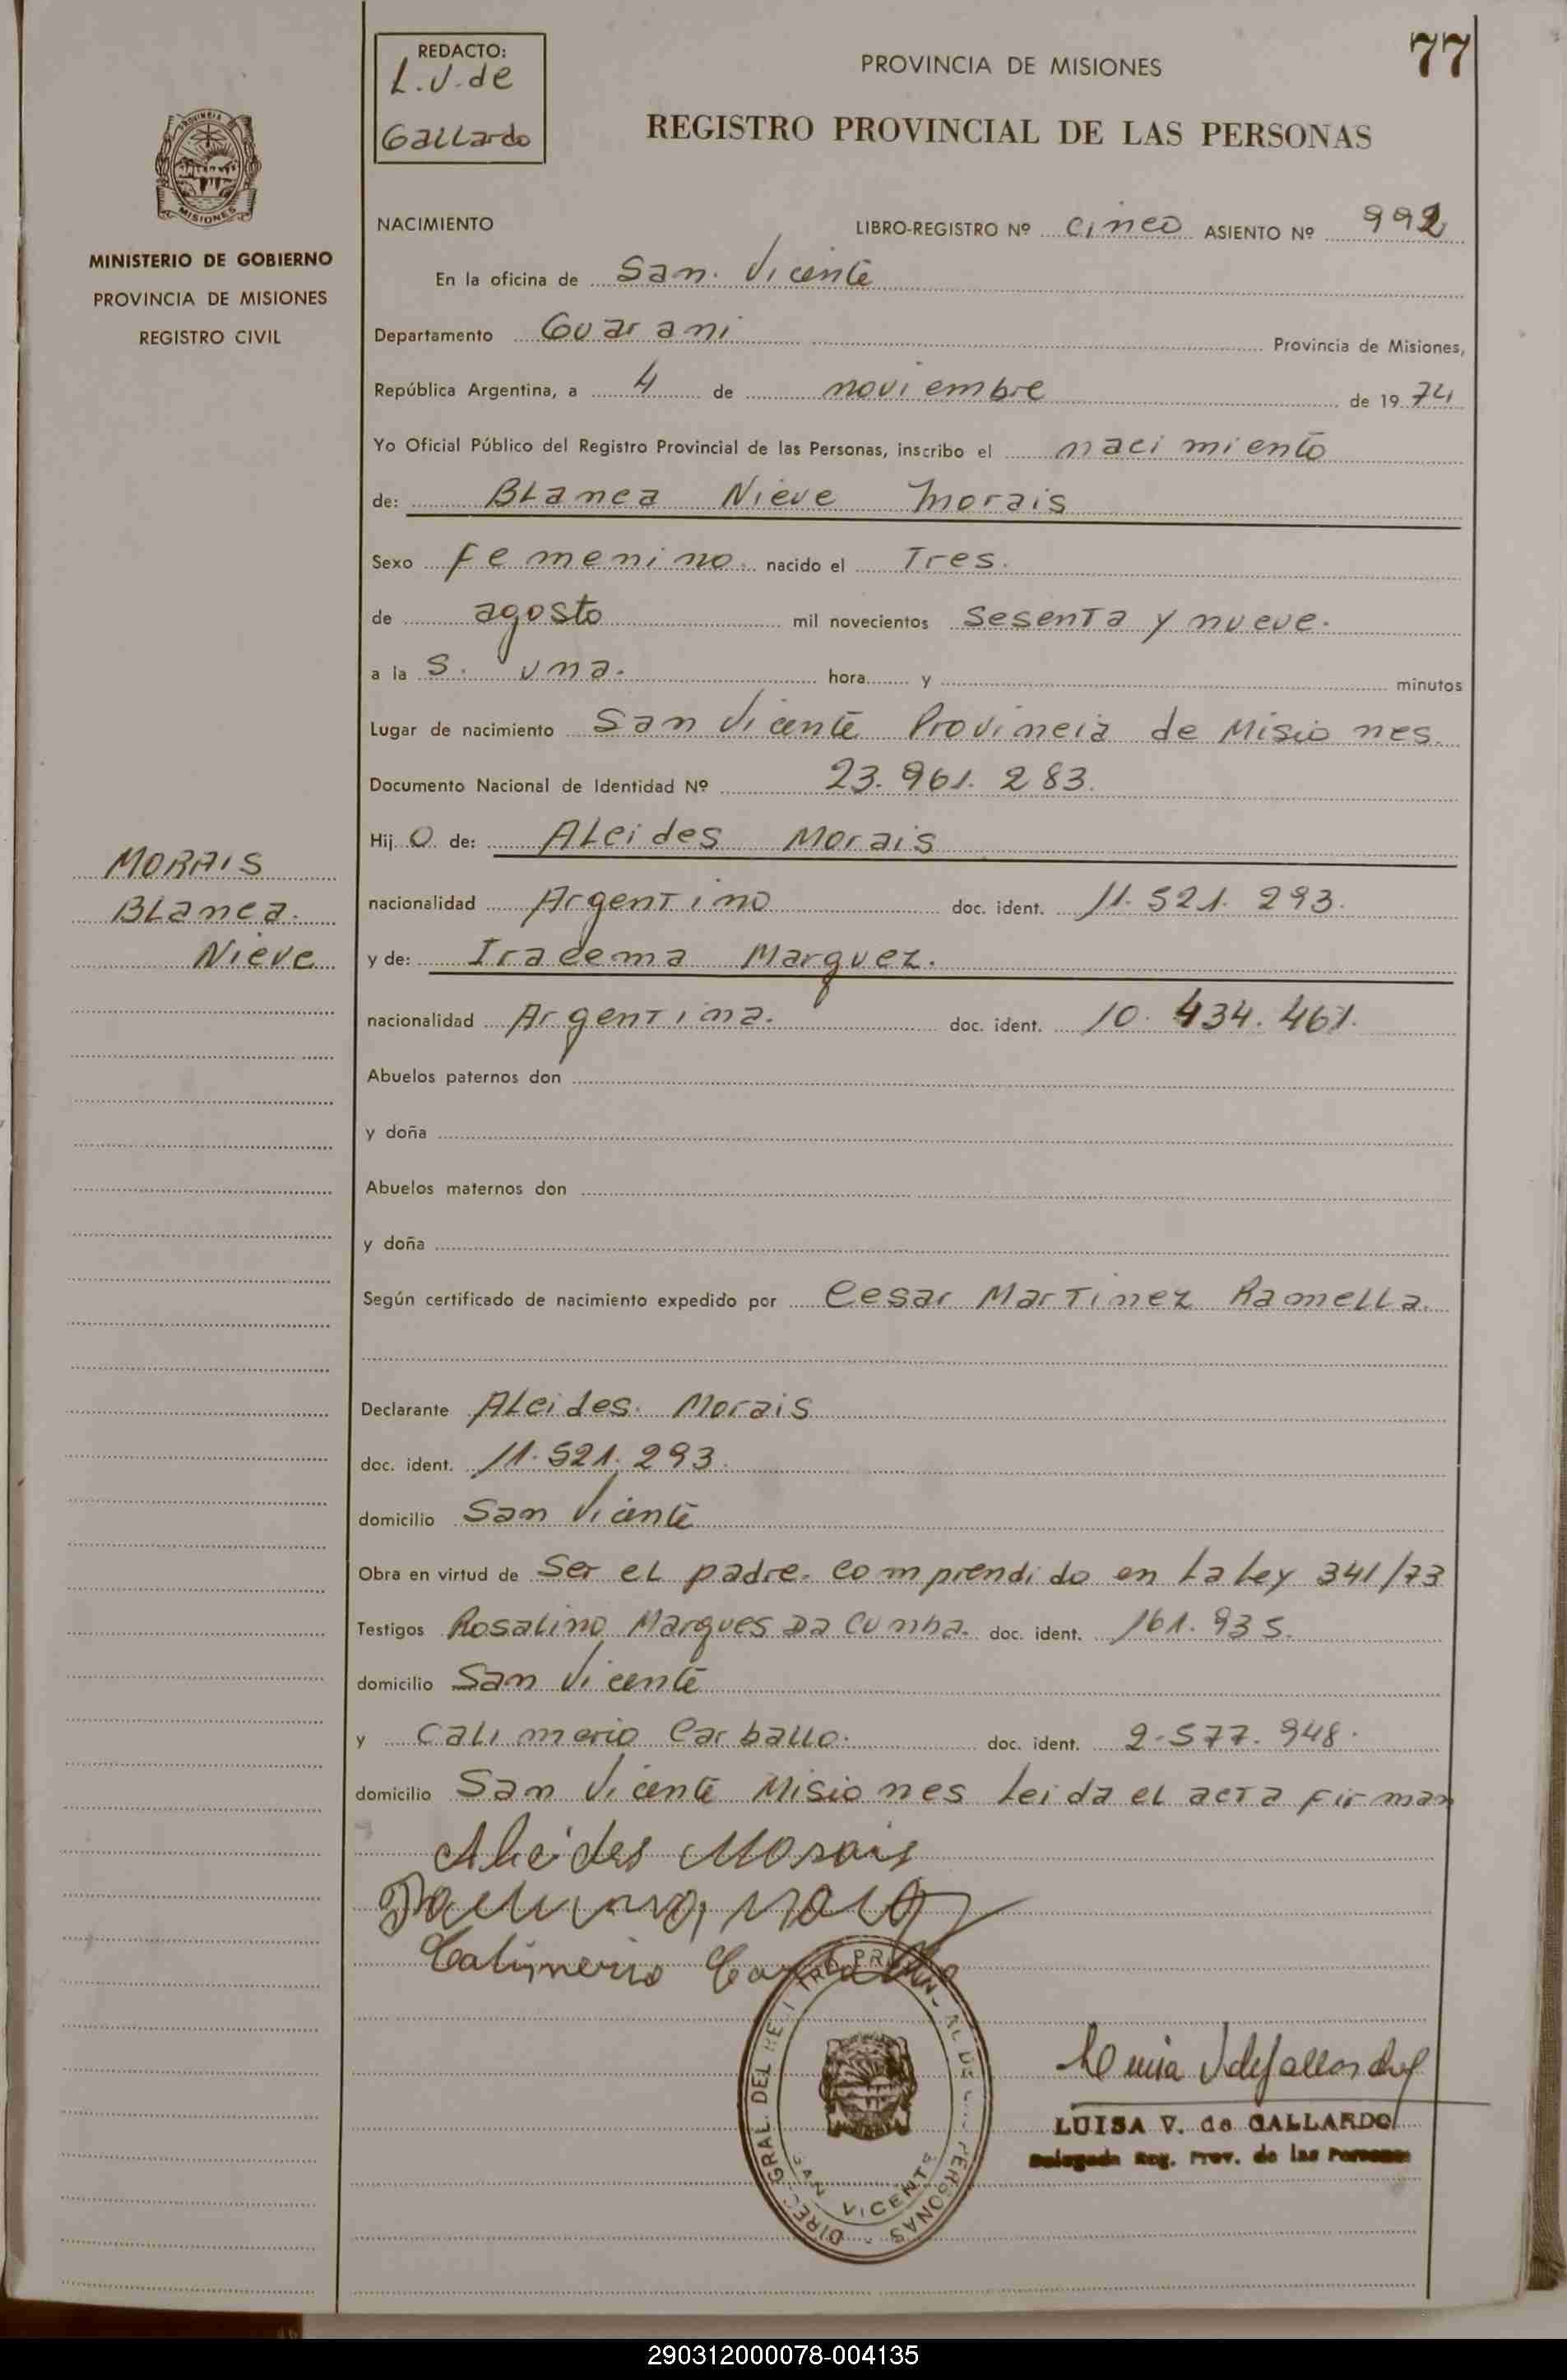 REDACTO:
L.V. de
Gallardo
77
PROVINCIA DE MISIONES
REGISTRO PROVINCIAL DE LAS PERSONAS
PROVINCIA DE
MISIONES
MINISTERIO DE GOBIERNO
PROVINCIA DE MISIONES
REGISTRO CIVIL
NACIMIENTO
LIBRO-REGISTRO Nº cinco ASIENTO Nº 992
En la oficina de San Vicente
Departamento Guarani Provincia de Misiones,
República Argentina, a 4 de noviembre de 1974
Yo Oficial Público del Registro Provincial de las Personas, inscribo el nacimiento
de: Blanca Nieve Morais
Sexo femenino. nacido el Tres.
de agosto mil novecientos sesenta y nueve.
a la s. una. hora y minutos
Lugar de nacimiento San Vicente Provincia de Misiones.
Documento Nacional de Identidad Nº 23.961.283.
Hij O de: Alcides Morais
nacionalidad Argentino doc. ident. 11.521.293.
y de: Iracema Marquez.
nacionalidad Argentina. doc. ident. 10.434.461.
MORAIS
Blanca.
Nieve
Abuelos paternos don
y doña
Abuelos maternos don
y doña
Según certificado de nacimiento expedido por Cesar Martinez Ramella.
Declarante Alcides. Morais
doc. ident. 11.521.293.
domicilio San Vicente
Obra en virtud de Ser el padre. comprendido en la Ley 341/73
Testigos Rosalino Marques Da Cunha. doc. ident. 161.935.
domicilio San Vicente
y Calimerio Carballo. doc. ident. 2.577.948.
domicilio San Vicente Misiones leida el acta firman
Alcides Morais
Calimerio Carballo
DIREC. GRAL. DEL REGISTRO PROVINCIAL DE LAS PERSONAS
SAN VICENTE
LUISA V. de GALLARDO
Delegada Reg. Prov. de las Personas
290312000078-004135